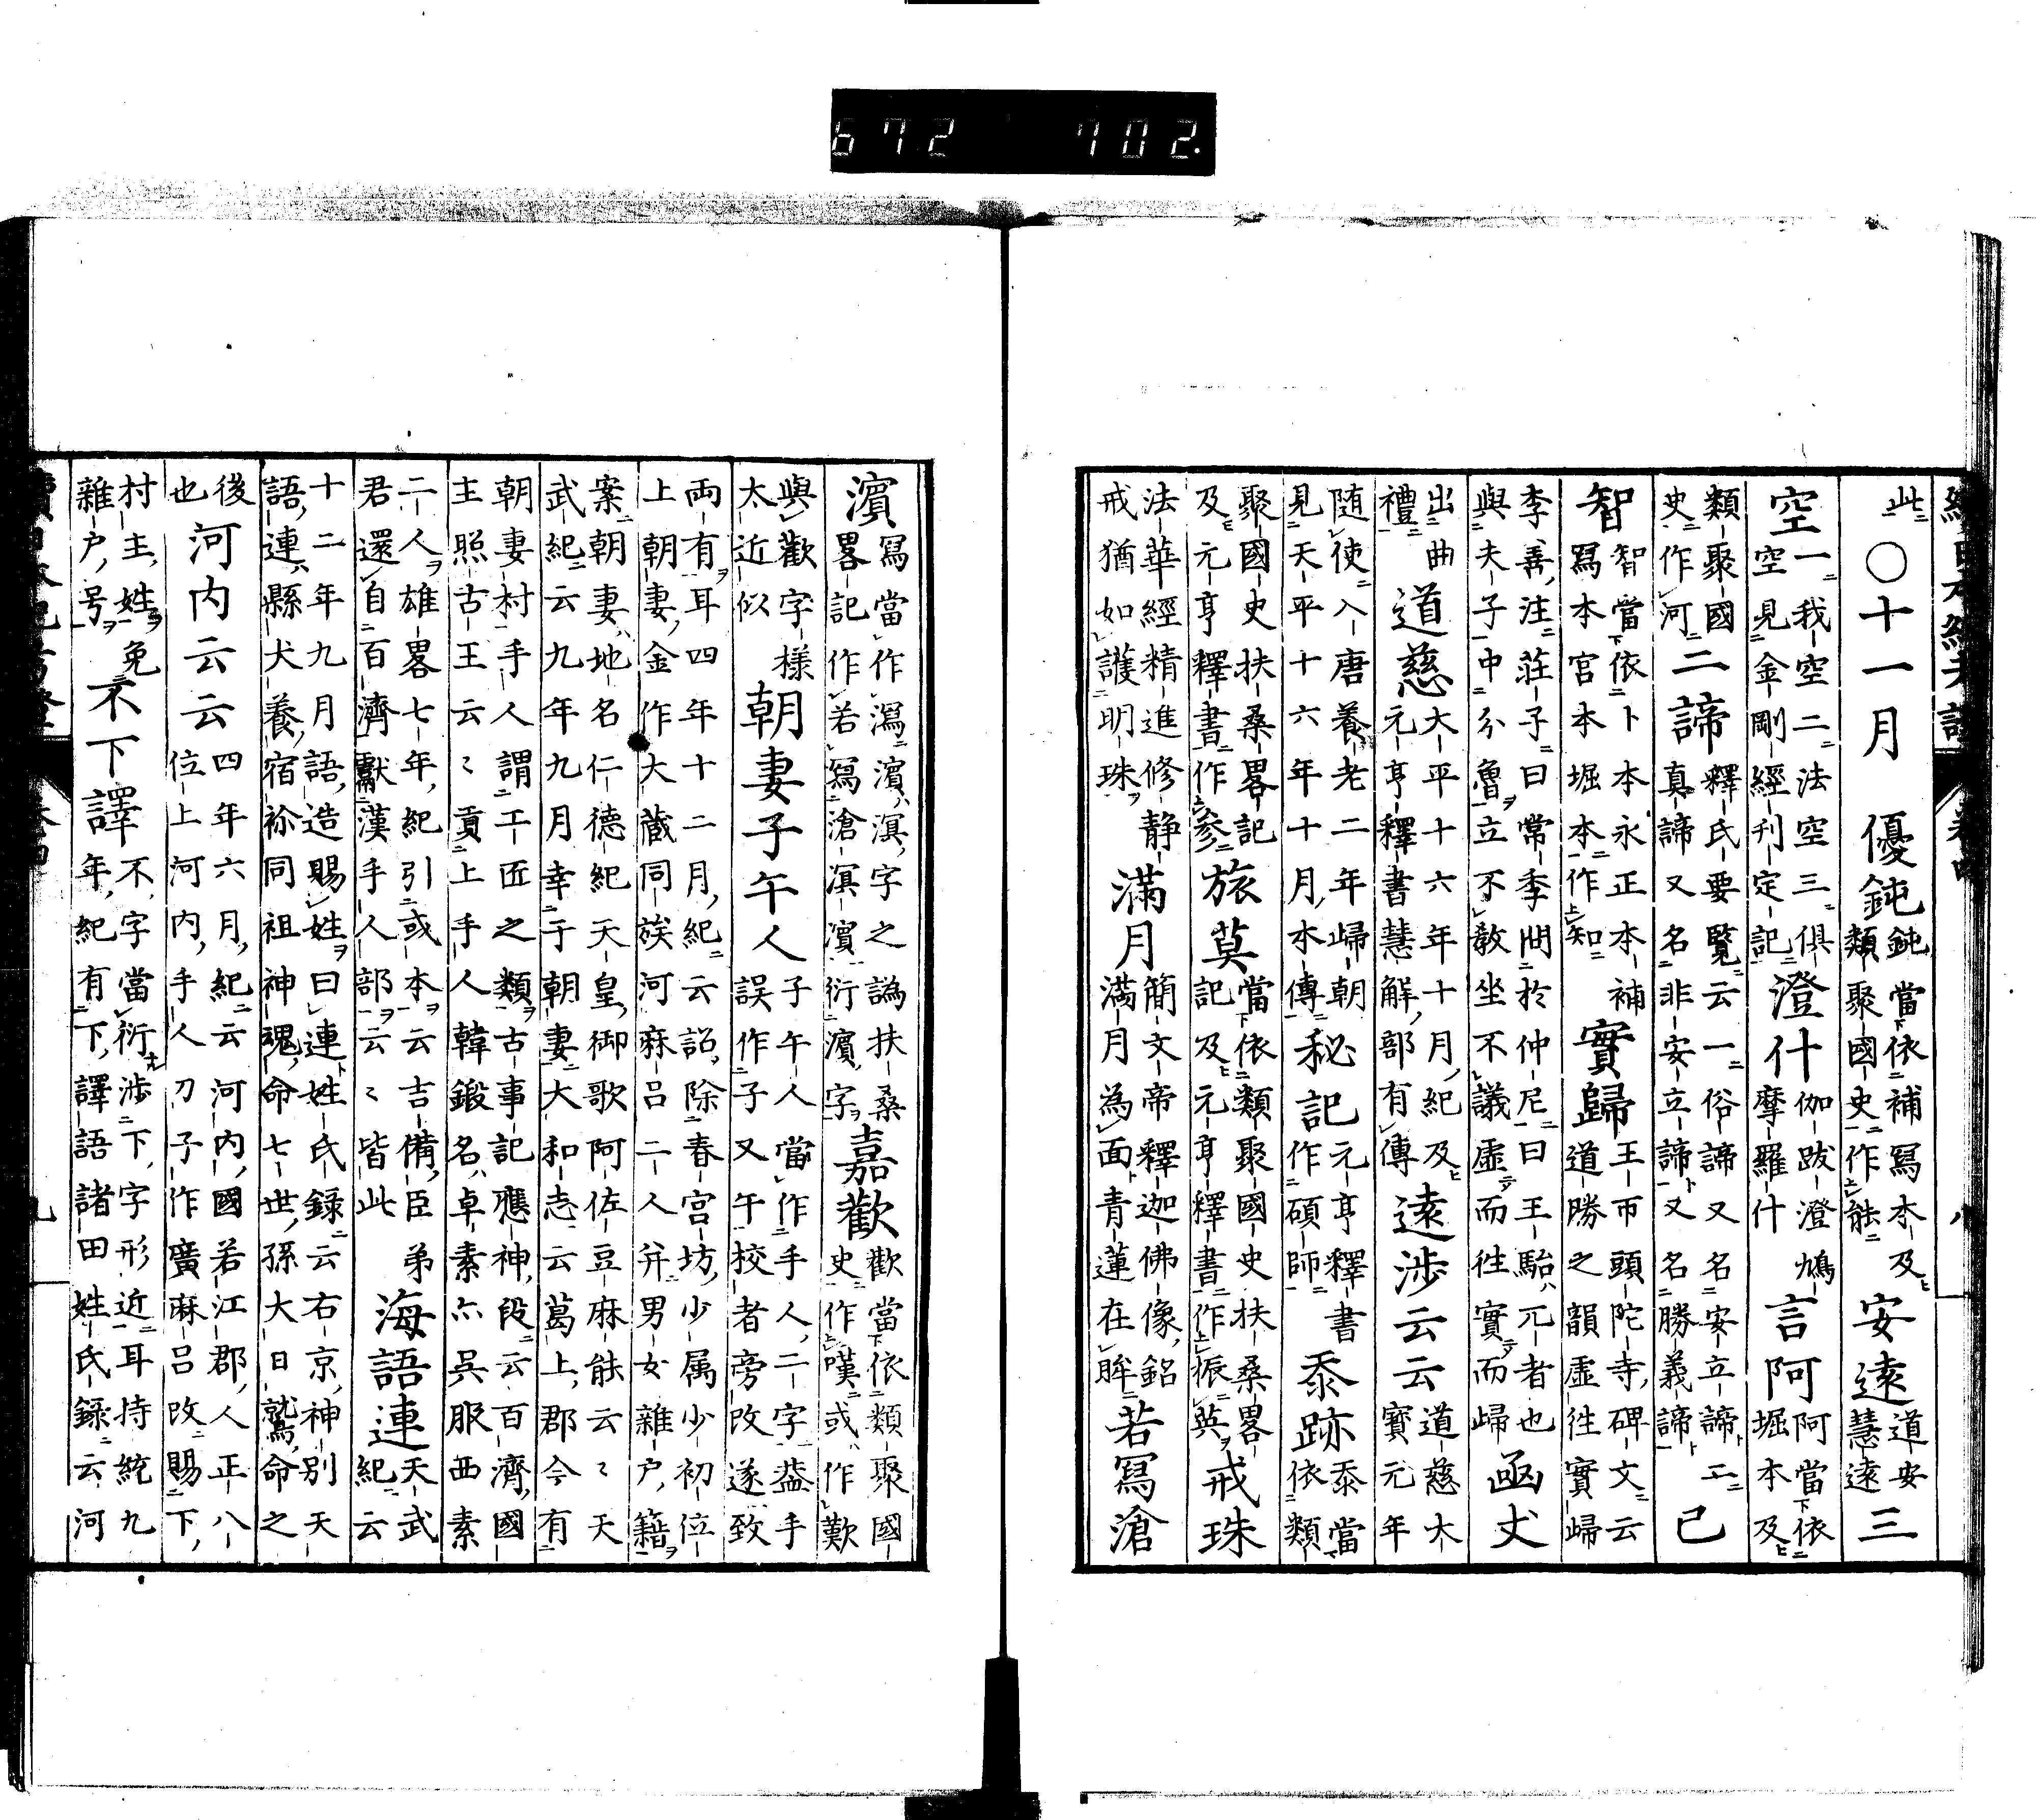 672 702.
續日本紀考證 卷四 八
此 ○十一月 優鈍 鈍當依補寫本及類聚國史作能 安遠 道安慧遠 三
空 一我空二法空三俱空見金剛經刊定記 澄什 伽跋澄鳩摩羅什 言阿 阿當依堀本及
類聚國史作河 二諦 釋氏要覽云一俗諦又名安立諦二真諦又名非安立諦又名勝義諦 已
智 智當依卜本永正本補寫本宮本堀本作知 實歸 王巾頭陀寺碑文云道勝之韻虛往實歸
李善注莊子曰常季問於仲尼曰王駘兀者也與夫子中分魯立不敎坐不議虛而往實而歸 函丈
出曲禮 道慈 大平十六年十月紀及元亨釋書慧解部有傳 遠涉云云 道慈大寶元年
随使入唐養老二年歸朝見天平十六年十月本傳 秘記 元亨釋書作碩師 黍跡 黍當依類
聚國史扶桑畧記及元亨釋書作參 旅莫 當依類聚國史扶桑畧記及元亨釋書作振英 戒珠
法華經精進修静戒猶如護明珠 滿月 簡文帝釋迦佛像銘滿月為面青蓮在眸 若寫滄
濵 寫當作瀉濵溟字之譌扶桑畧記作若寫滄溟濵衍濵字 嘉歡 歡當依類聚國史作嘆或作歎
與歡字樣太近似 朝妻子午人 子午人當作手人二字葢手誤作子又午校者旁改遂致
両有耳四年十二月紀云詔除春宮坊少属少初位上朝妻金作大蔵同族河麻呂二人并男女雜户籍
案朝妻地名仁德紀天皇御歌阿佐豆麻能云〻天武紀云九年九月幸于朝妻大和志云葛上郡今有
朝妻村手人謂工匠之類古事記應神段云百濟國主照古王云〻貢上手人韓鍛名卓素亦吳服西素
二人雄畧七年紀引或本云吉備臣弟君還自百濟獻漢手人部云〻皆此 海語連 天武紀云
十二年九月語造賜姓曰連姓氏録云右京神别天語連縣犬養宿祢同祖神魂命七世孫大日鷲命之
後也 河内云云 四年六月紀云河内國若江郡人正八位上河内手人刀子作廣麻呂改賜下
村主姓免雜户号 不下譯 不字當衍涉下字形近耳持統九年紀有下譯語諸田姓氏録云河
九